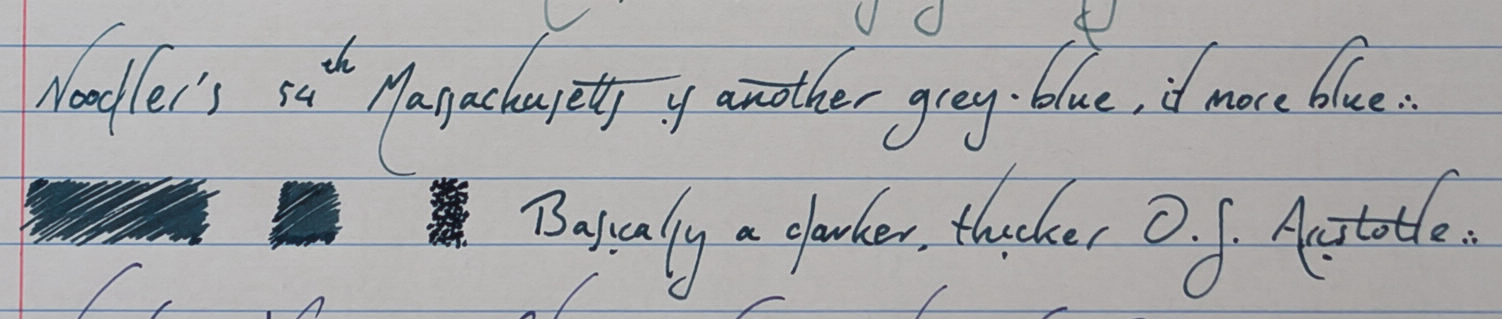 Noodler's 54th Massachusetts is another grey-blue, if more blue∴
Basically a darker, thicker O.S. Aristotle∴